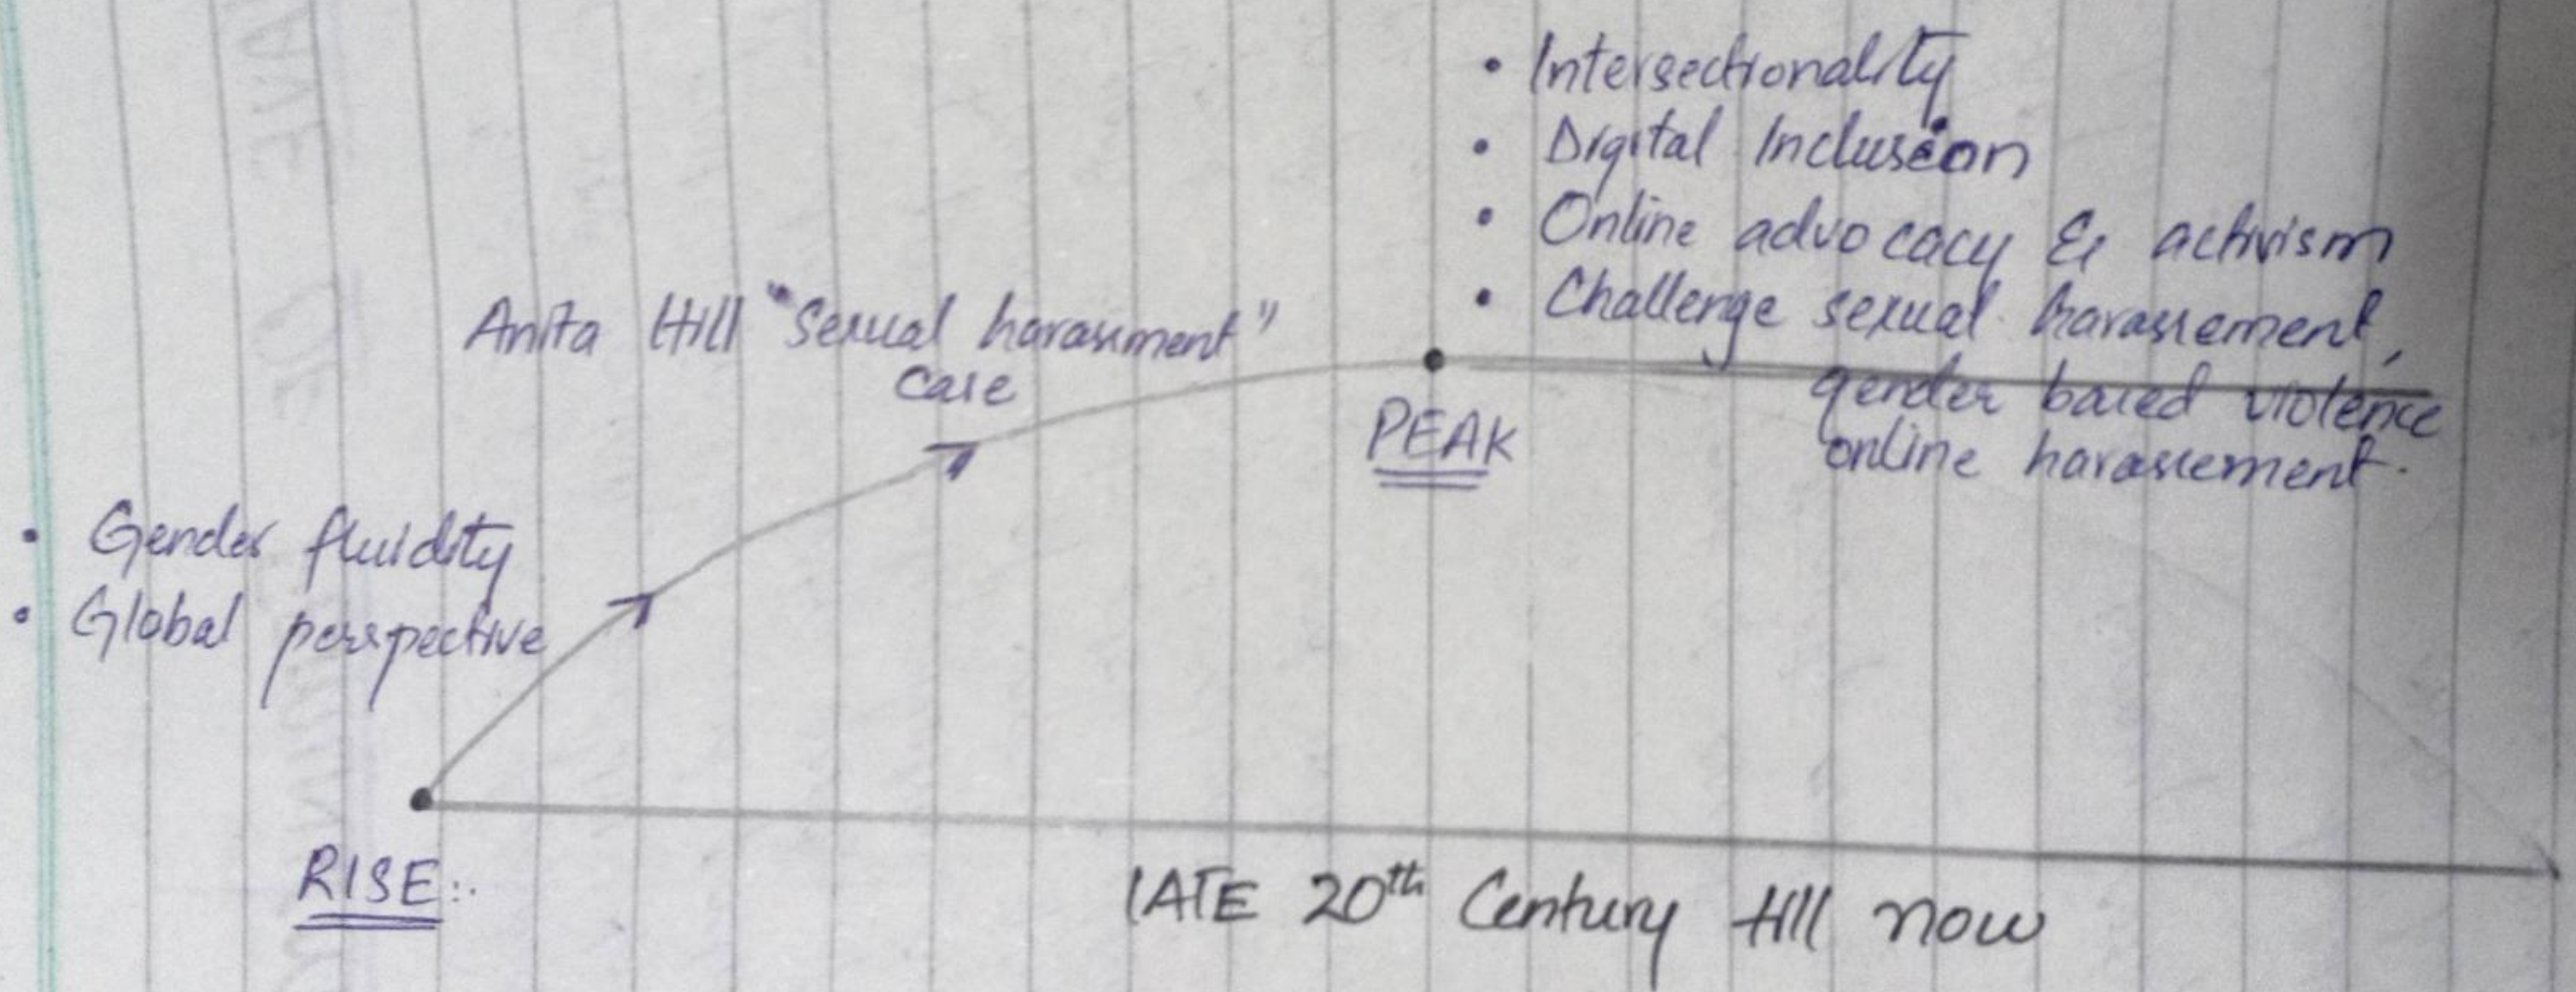 • Intersectionality
• Digital Inclusion
• Online advocacy & activism
• Challenge sexual harassement,
gender based violence
online harassement.
Anita Hill "Sexual harassment"
case
PEAK
• Gender fluidity
• Global perspective
RISE:.
LATE 20th Century till now